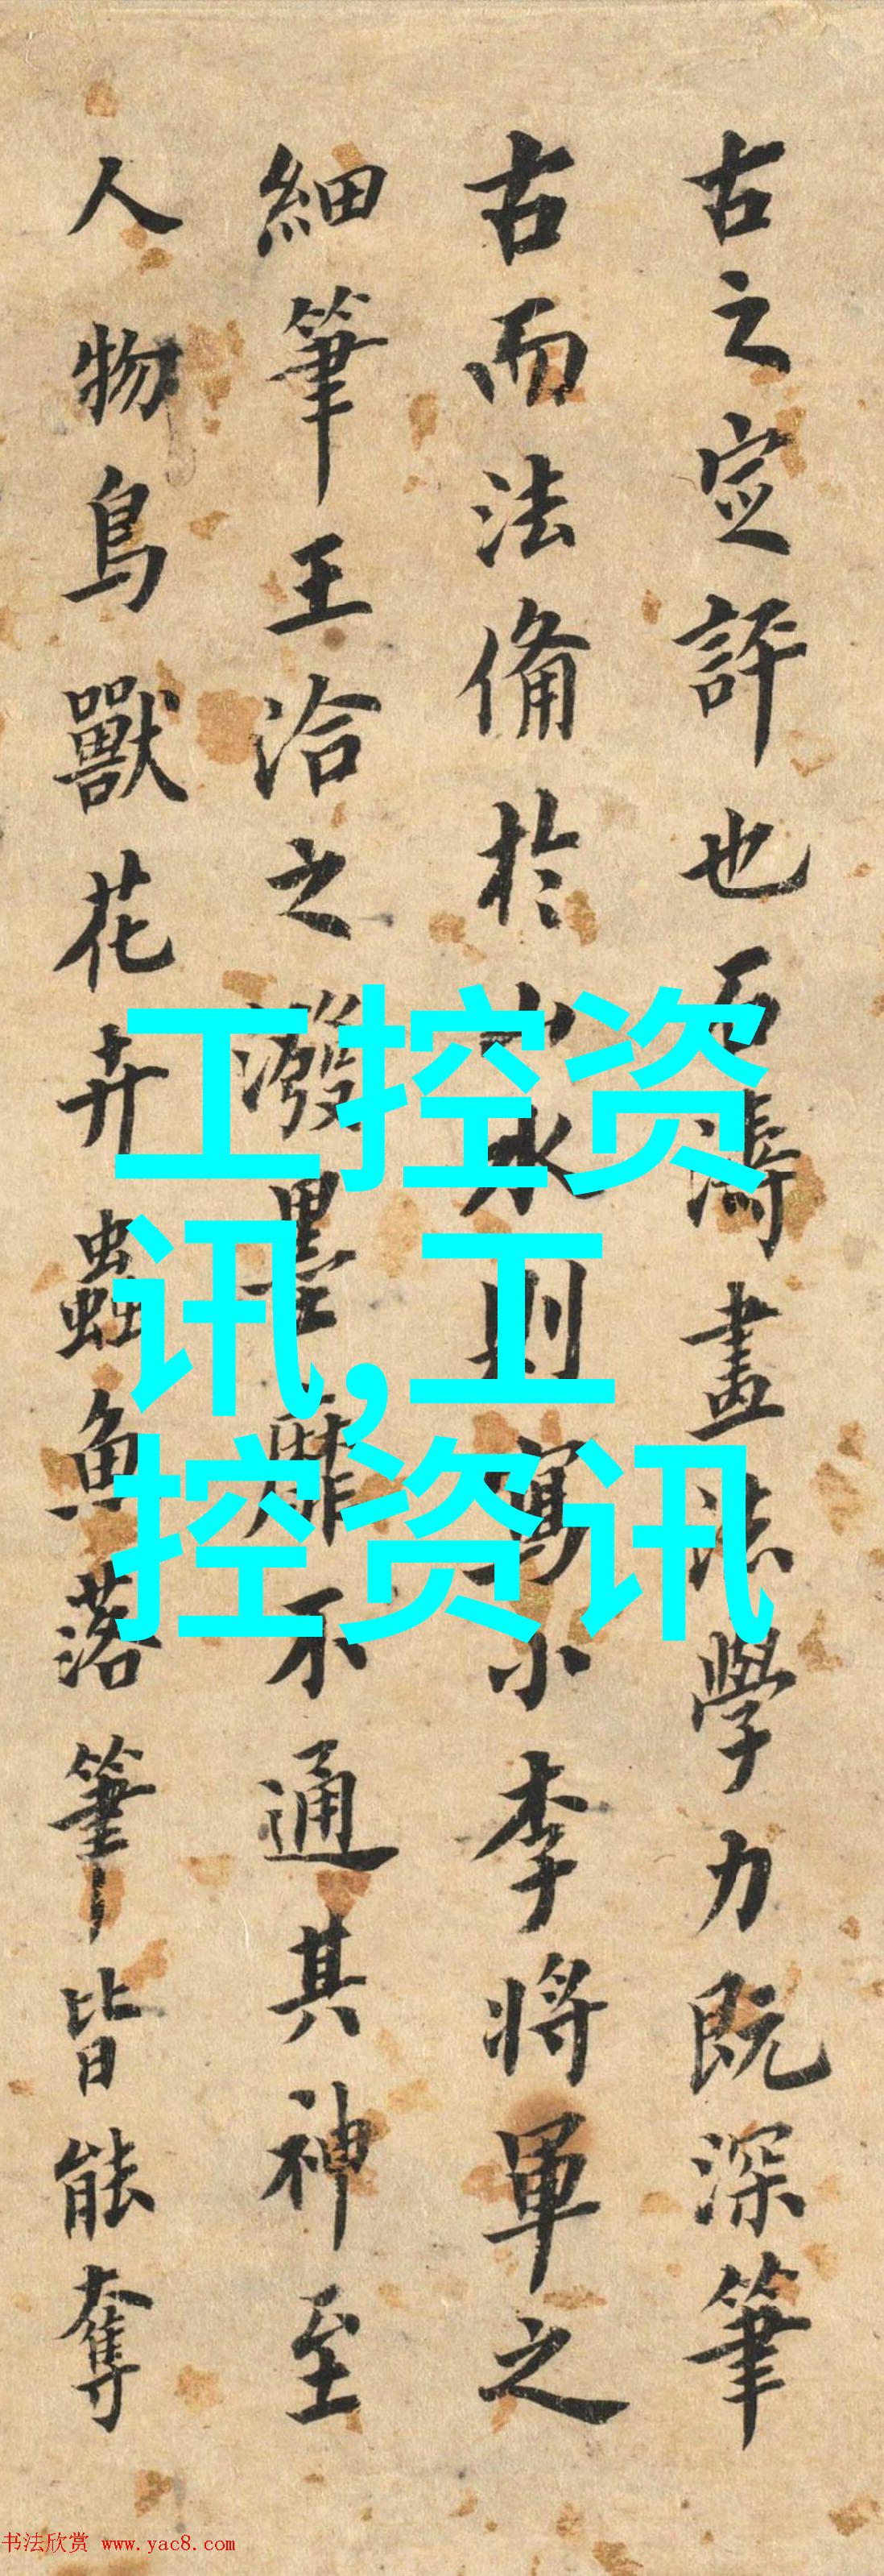 古之定評也石濤畫法學力既深筆
古而法備於山水則寫小李將軍之
細筆王洽之潑墨靡不通其神至
人物鳥獸花卉蟲魚落筆皆能奪
工控资
讯,工
控资讯
书法欣赏 www.yac8.com